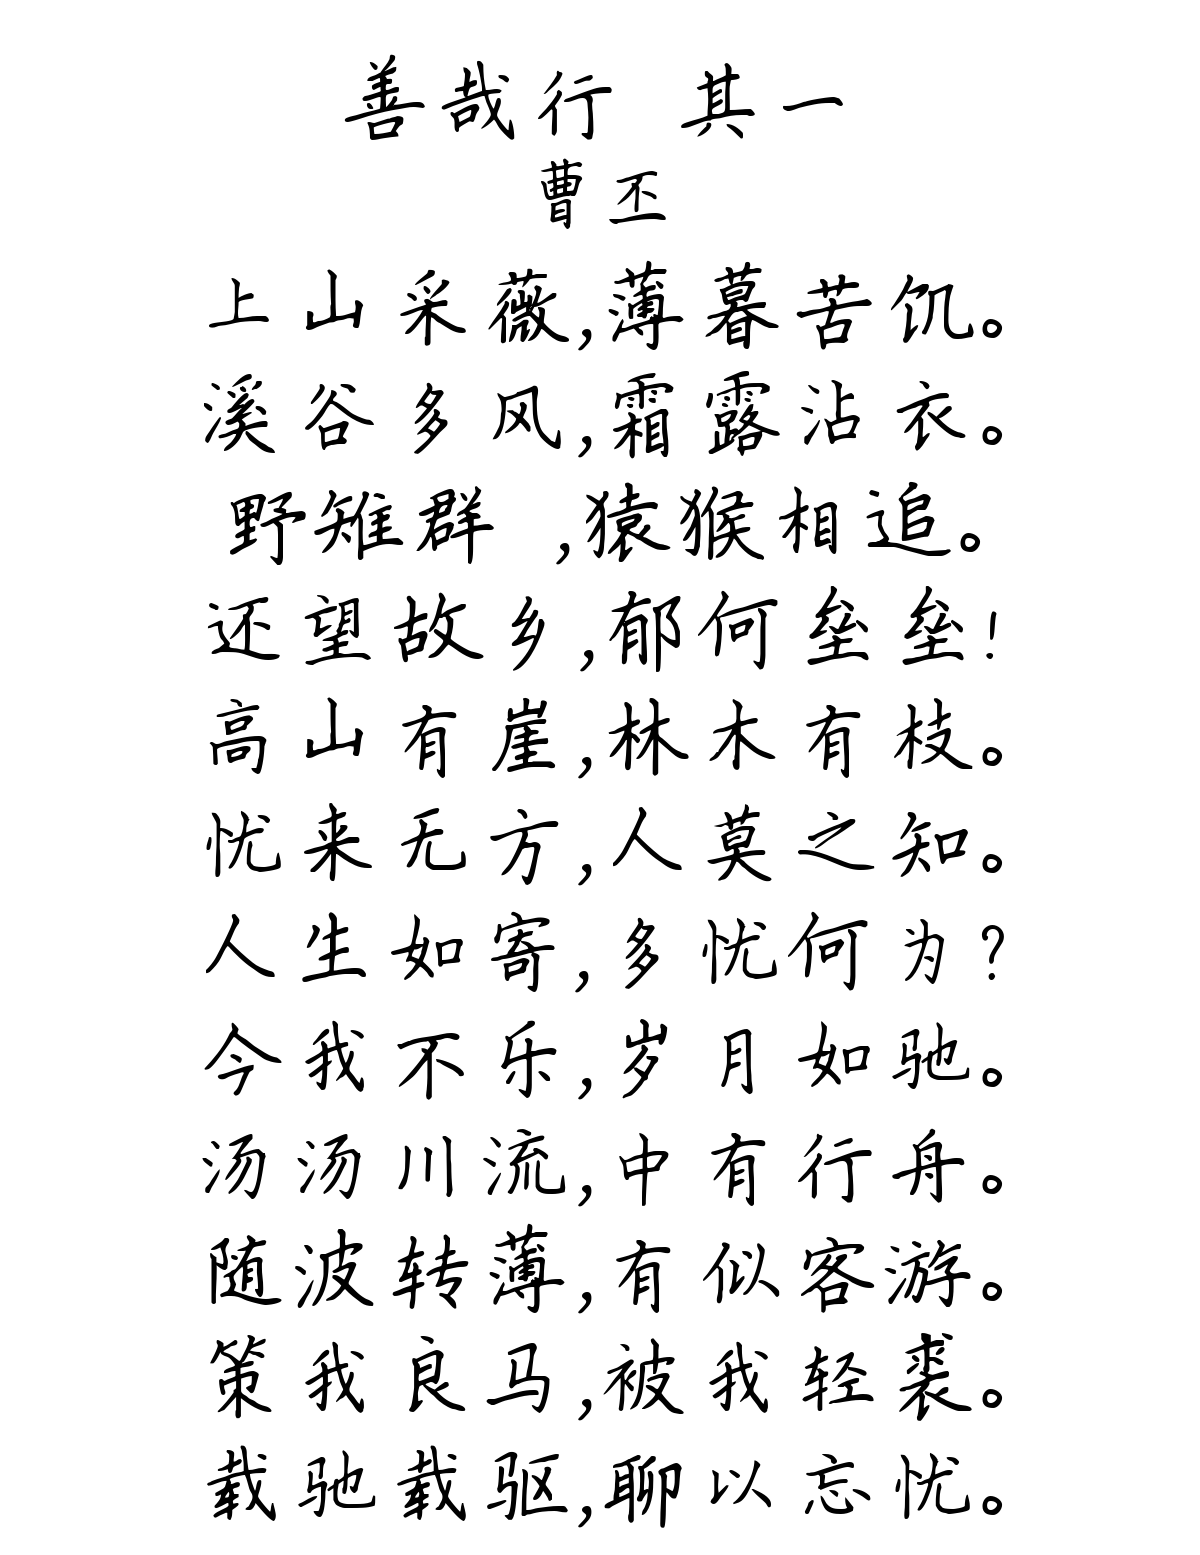 善哉行 其一
曹丕
上山采薇,薄暮苦饥。
溪谷多风,霜露沾衣。
野雉群 ,猿猴相追。
还望故乡,郁何垒垒!
高山有崖,林木有枝。
忧来无方,人莫之知。
人生如寄,多忧何为?
今我不乐,岁月如驰。
汤汤川流,中有行舟。
随波转薄,有似客游。
策我良马,被我轻裘。
载驰载驱,聊以忘忧。